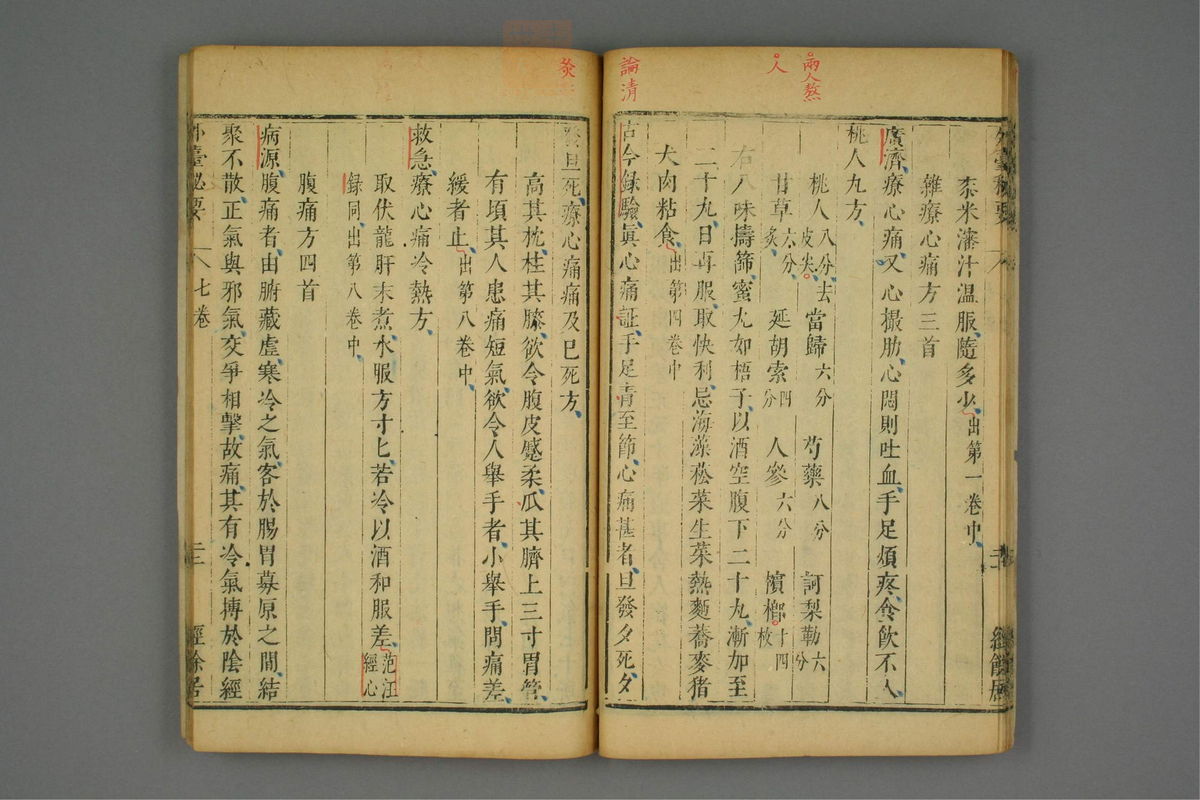 兩人熬
人
論清
外臺秘要
泰米瀋汁溫服隨多少出第一卷中
雜療心痛方三首
廣濟療心痛又心撮肋心悶則吐血手足煩疼食飲不入
桃人九方
桃人八分去皮尖 當歸六分 芍藥八分 訶梨勒六分
甘草六分炙 延胡索四分 人參六分 檳榔十四枚
右八味擣篩蜜丸如梧子以酒空腹下二十丸漸加至
二十九日再服取快利忌海藻菘菜生菜熱麵蕎麥猪
犬肉粘食出第四卷中
古今錄驗眞心痛証手足青至節心痛甚者旦發夕死夕
發旦死療心痛痛及已死方
高其枕柱其膝欲令腹皮蹙柔瓜其臍上三寸胃管
有頃其人患痛短氣欲令人舉手者小舉手問痛差
緩者止出第八卷中
救急療心痛冷熱方
取伏龍肝末煮水服方寸匕若冷以酒和服差范汪經心
録同出第八卷中
腹痛方四首
病源腹痛者由腑藏虛寒冷之氣客於腸胃募原之間結
聚不散正氣與邪氣交爭相擊故痛其有冷氣搏於陰經
外臺秘要 七卷 二十 經餘居